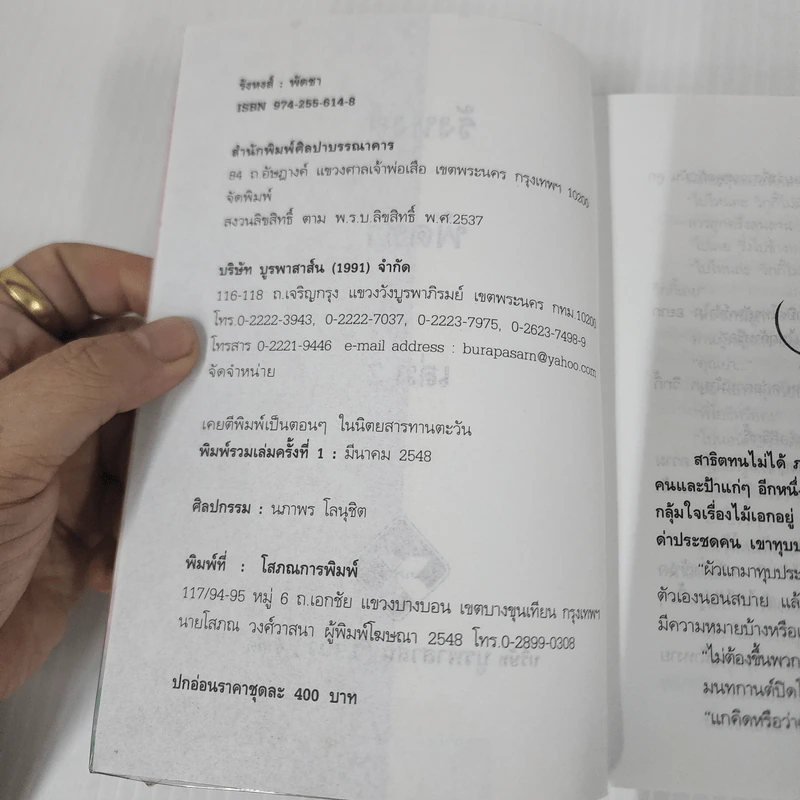 รังหงส์ : พัดชา
ISBN 974-255-614-8
สำนักพิมพ์ศิลปาบรรณาคาร
84 ถ.อัษฎางค์ แขวงศาลเจ้าพ่อเสือ เขตพระนคร กรุงเทพฯ 10200
จัดพิมพ์
สงวนลิขสิทธิ์ ตาม พ.ร.บ.ลิขสิทธิ์ พ.ศ.2537
บริษัท บูรพาสาส์น (1991) จำกัด
116-118 ถ.เจริญกรุง แขวงวังบูรพาภิรมย์ เขตพระนคร กทม.10200
โทร.0-2222-3943, 0-2222-7037, 0-2223-7975, 0-2623-7498-9
โทรสาร 0-2221-9446 e-mail address : burapasarn@yahoo.com
จัดจำหน่าย
เคยตีพิมพ์เป็นตอนๆ ในนิตยสารทานตะวัน
พิมพ์รวมเล่มครั้งที่ 1 : มีนาคม 2548
ศิลปกรรม : นภาพร โลนุชิต
พิมพ์ที่ : โสภณการพิมพ์
117/94-95 หมู่ 6 ถ.เอกชัย แขวงบางบอน เขตบางขุนเทียน กรุงเทพฯ
นายโสภณ วงศ์วาสนา ผู้พิมพ์โฆษณา 2548 โทร.0-2899-0308
ปกอ่อนราคาชุดละ 400 บาท
สาธิตทนไม่ได้
คนและป้าแก่ๆ อีกหนึ่
กลุ้มใจเรื่องไม้เอกอยู่
ด่าประชดคน เขาทุบ
"ผัวแกมาทุบประ
ตัวเองนอนสบาย แล้
มีความหมายบ้างหรือ
"ไม่ต้องขึ้นพวก
มนทกานต์ปิด
"แกคิดหรือว่า